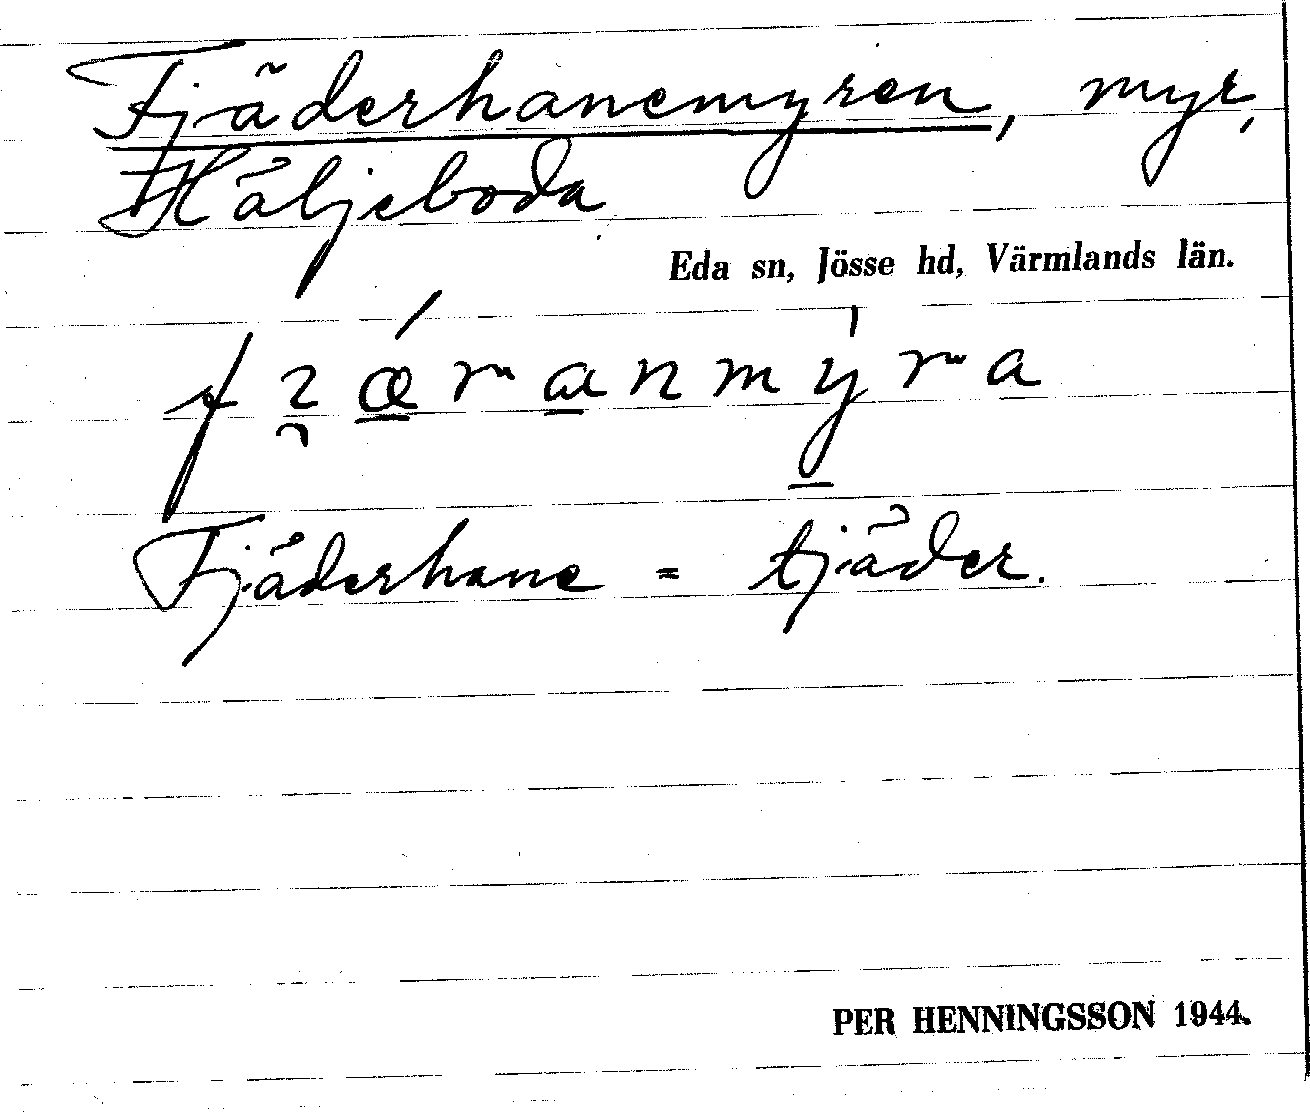 Tjäderhanemyren, myr,
Häljeboda
Eda sn, Jösse hd, Värmlands län.
Tjäderhane = tjäder.
PER HENNINGSSON 1944.